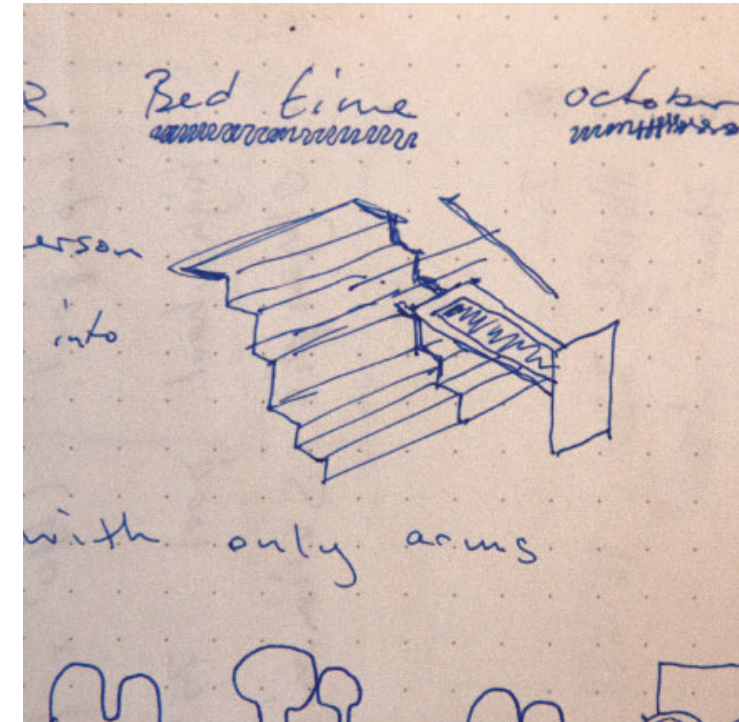 Bed time october
erson
into
with only arms